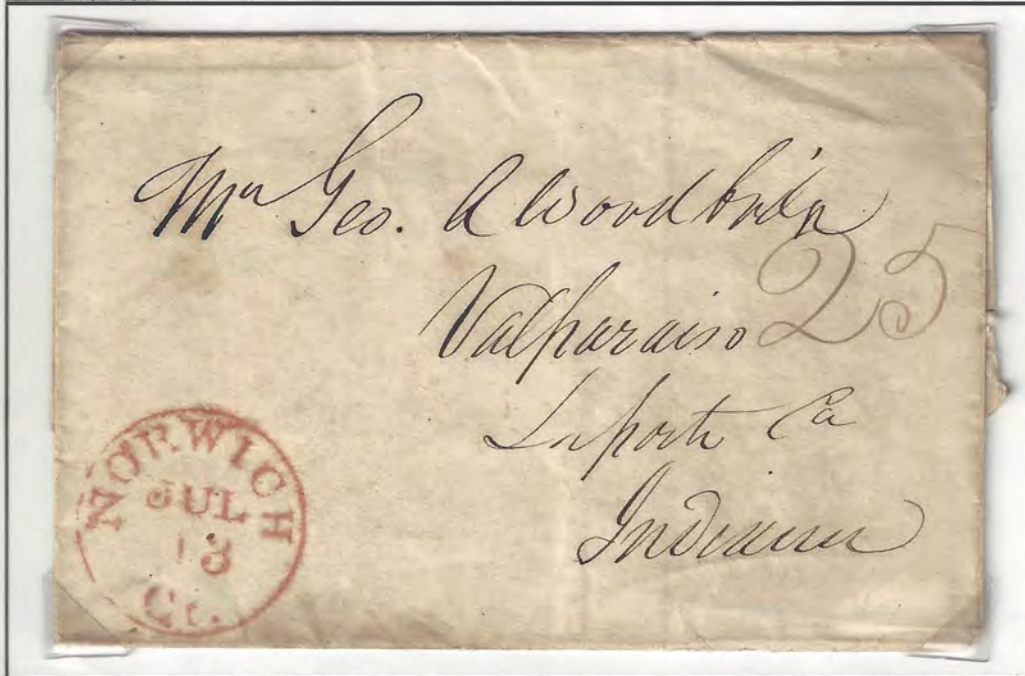 Mr Geo. A Woodbridge
Valparaiso
25
Laporte Co
Indiana
NORWICH
JUL
13
Ct.